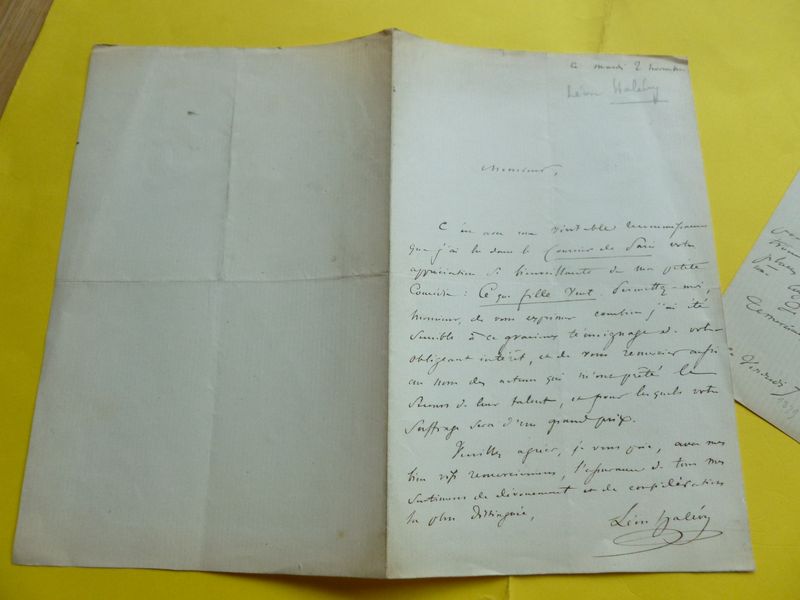 Ce mardi 2 novembre
Léon Halévy
Monsieur,
C'est avec une véritable reconnaissance
que j'ai lu dans le Courrier de Paris votre
appréciation si bienveillante de ma petite
Comédie : Ce que fille veut. Permettez-moi,
Monsieur, de vous exprimer combien j'ai été
sensible à ce gracieux témoignage de votre
obligeant intérêt, et de vous remercier aussi
au nom des acteurs qui m'ont prêté le
secours de leur talent, et pour lesquels votre
suffrage sera d'un grand prix.
Veuillez agréer, je vous prie, avec mes
bien vifs remerciemens, l'assurance de tous mes
sentimens de dévouement et de considération
la plus distinguée,
Léon Halévy
Vendredi